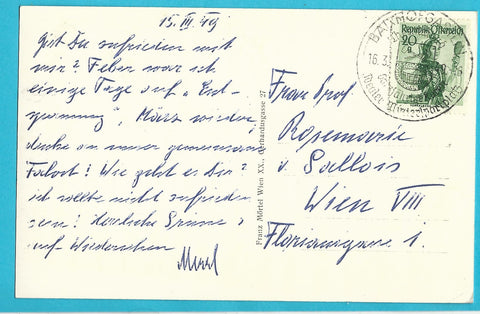 15. III. 49
bist Du zufrieden mit
mir? Feber war ich
einige Tage auf "Ent-
spannung", März wieder,
denke an unser gemeinsam.
Wie geht es Dir?
ich sollte nicht zufrieden
sein! Herzliche Grüsse
auf Wiedersehen
Franz Mörtel Wien XX., Gerhardusgasse 27
Frau Prof
Rosemarie
v. Sallois
Wien VIII
Floriangasse 1.
Republik Österreich
20
g
BAD HOFGA
16.3.